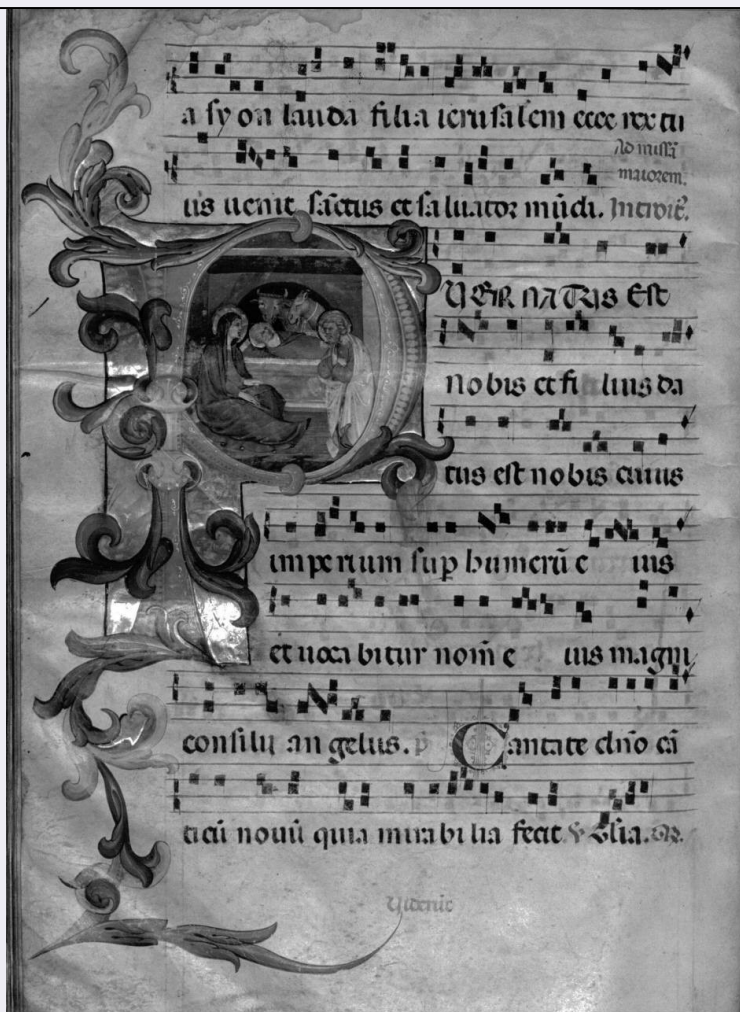 a sy on lauda filia ierusalem ecce rex tu
Ad missā
maiorem.
us uenit sāctus et saluator mūdi. Introit̄.
PUER NATUS EST
nobis et filius da
tus est nobis cuius
imperium sup humerū e ius
et uocabitur nom̄ e ius magni
consilii angelus. p̄ Cantate dn̄o cā
ticū nouū quia mirabilia fecit ℣ Gl̄ia.